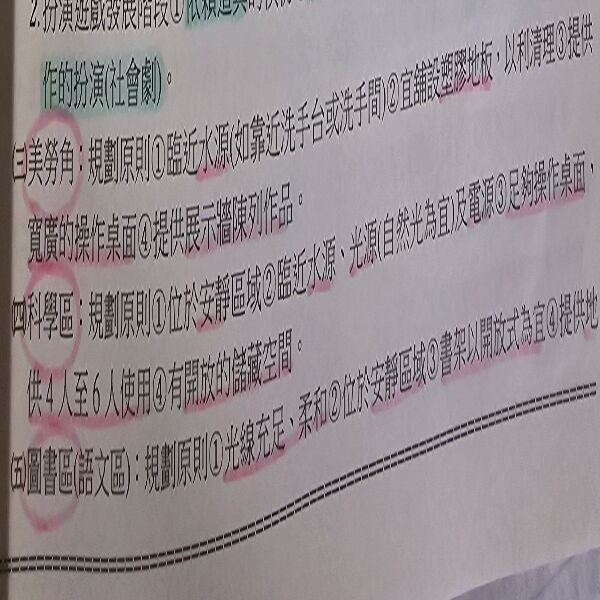 2.扮演遊戲發展階段①依賴道具的
作的扮演(社會劇)。
㈢美勞角：規劃原則①臨近水源(如靠近洗手台或洗手間)②宜鋪設塑膠地板，以利清理③提供
寬廣的操作桌面④提供展示牆陳列作品。
㈣科學區：規劃原則①位於安靜區域②臨近水源、光源(自然光為宜)及電源③足夠操作桌面，
供4人至6人使用④有開放的儲藏空間。
㈤圖書區(語文區)：規劃原則①光線充足、柔和②位於安靜區域③書架以開放式為宜④提供地